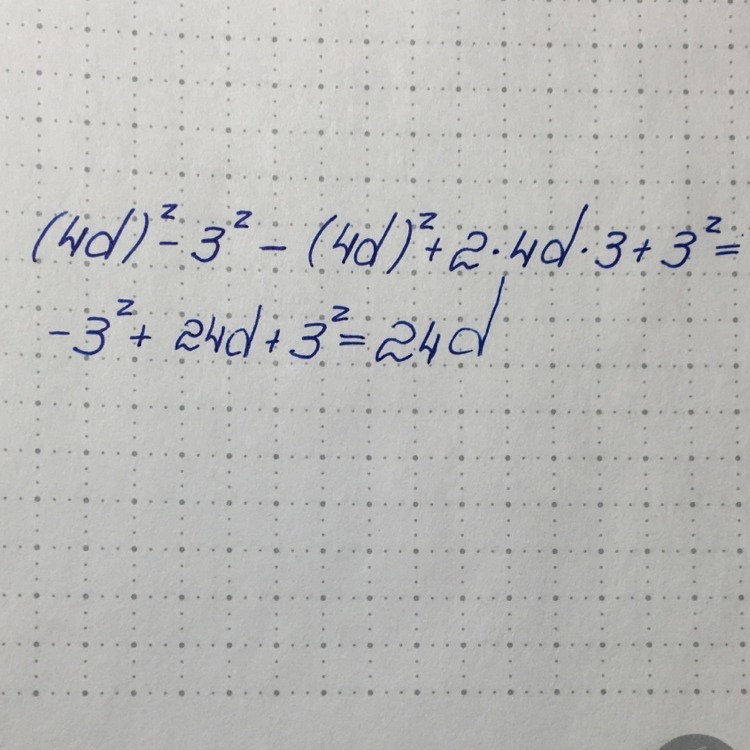 (4d)² - 3² - (4d)² + 2·4d·3 + 3² =
-3² + 24d + 3² = 24d